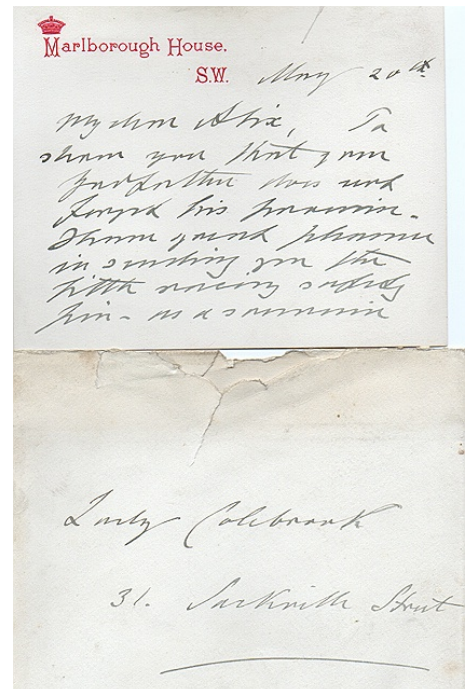 Marlborough House.
S.W. May 20th
My dear Alix, To
show you that your
Godfather does not
forget his promise -
I have great pleasure
in sending you the
little racing safety
pin - as a souvenir
Lady Colebrook
31. Sackville Street